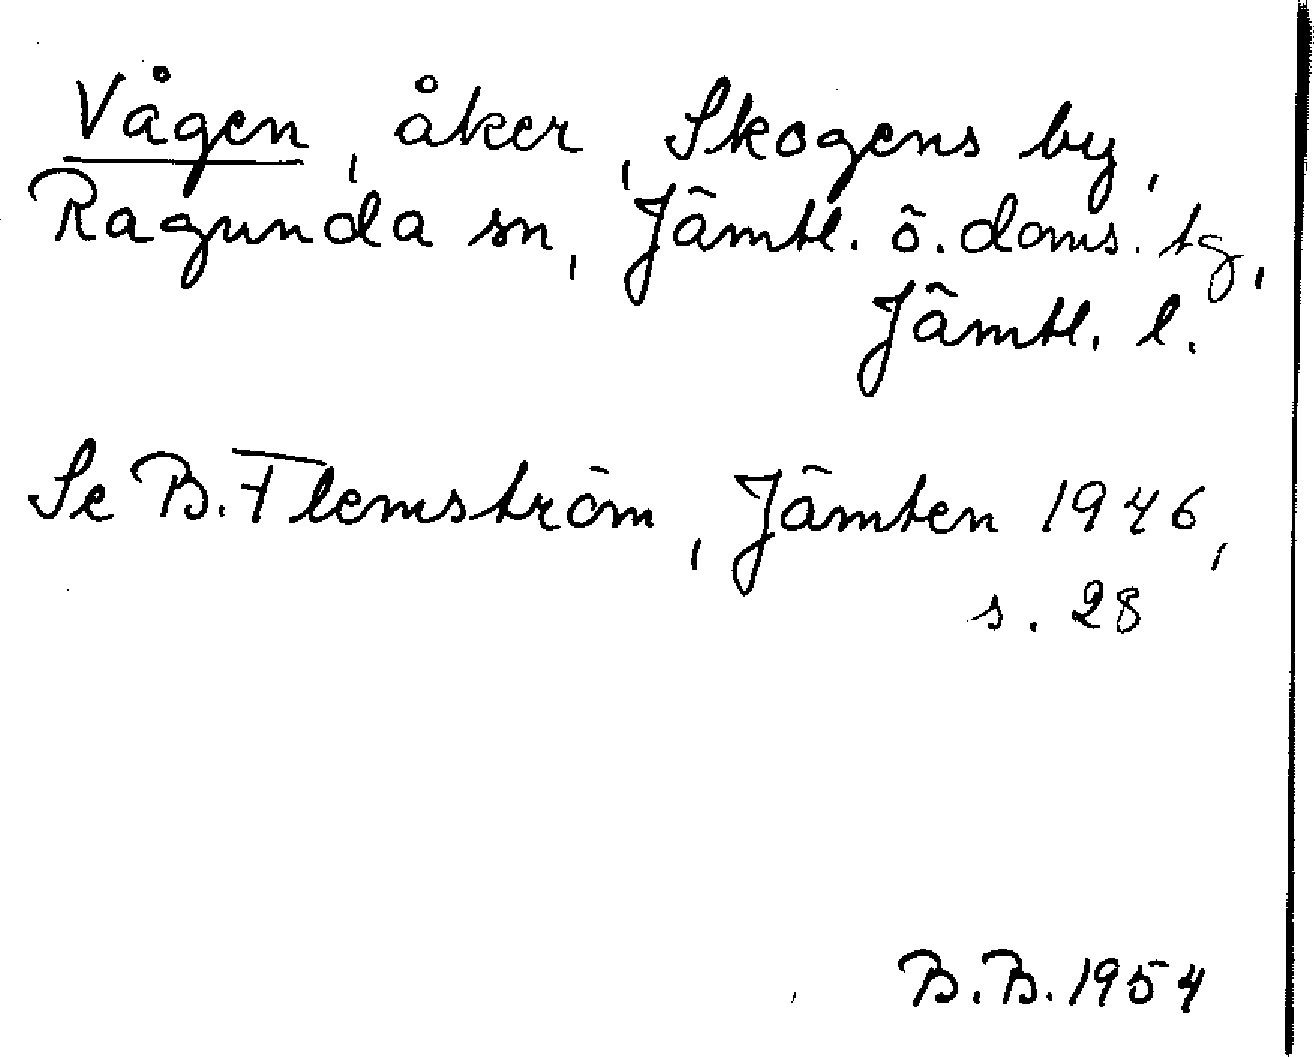 Vågen, åker, Skogens by,
Ragunda sn, Jämtl. ö. doms. tg,
Jämtl. l.
Se B. Flemström, Jämten 1946,
s. 28
B.B. 1954